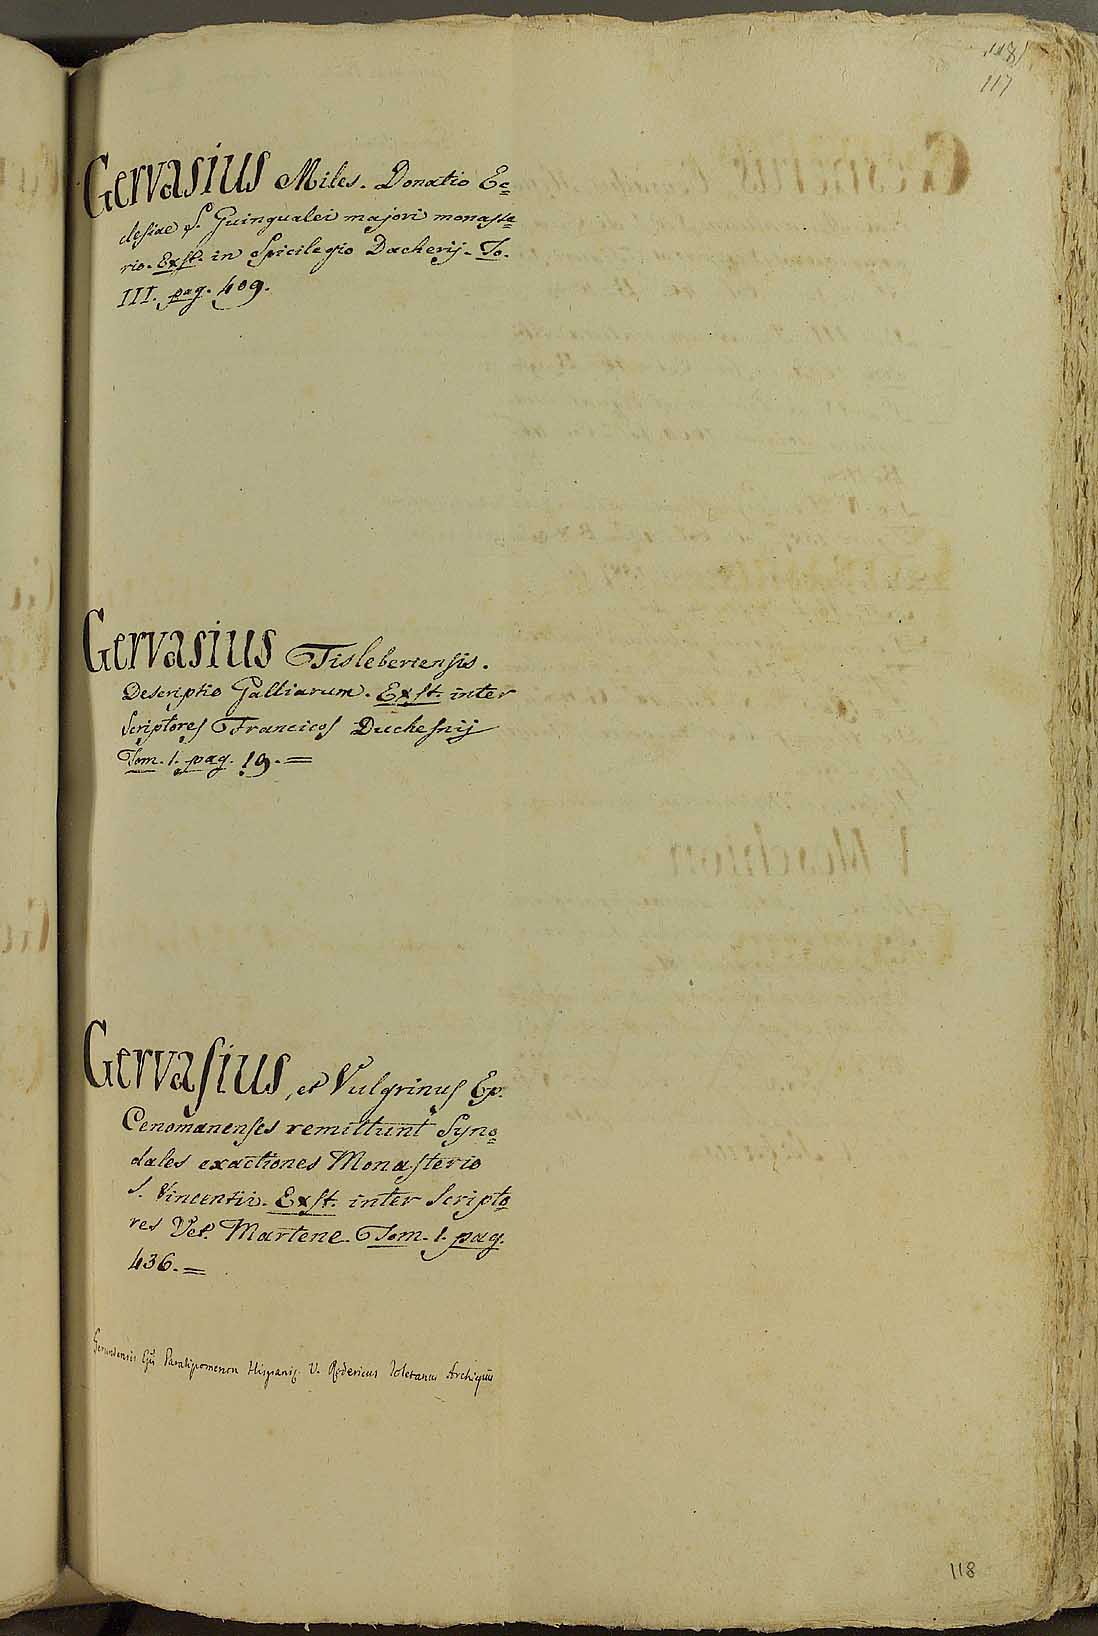 118
117
Gervasius Miles. Donatio Ec=
clesiae S. Guingualei majori monaste=
rio. Exst. in Spicilegio Dacherij. To.
III. pag. 409.
Gervasius Tisleberiensis.
Descriptio Galliarum. Exst. inter
Scriptores Francicos Duchesnij
Tom. 1. pag. 19. =
Gervasius, et Vulgrinus Ep.
Cenomanenses remittunt Syno=
dales exactiones Monasterio
S. Vincentii. Exst. inter Scripto=
res Vet. Martene. Tom. 1. pag.
436. =
Gerundensis Epi Paralipomenon Hispaniȩ. V. Rodericus Toletanus Archiepus
118